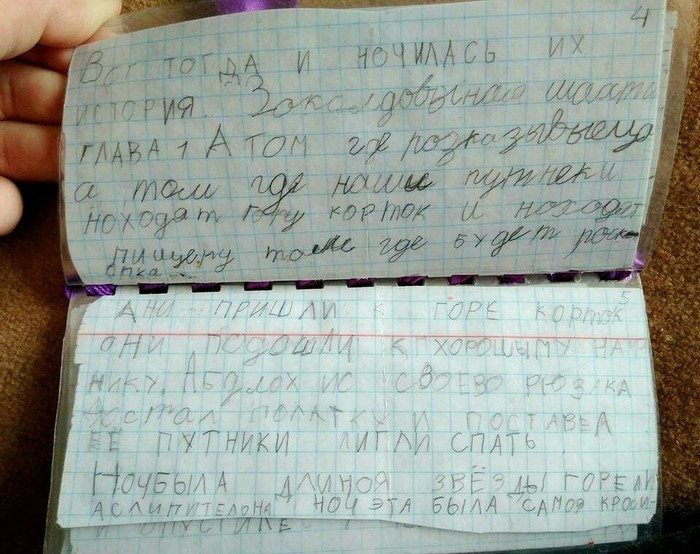 4
Вот тогда и ночилась их
история. Заколдовыная шахта
глава 1 А том где розказываеца
а том где наши путнеки
ноходят гору корток и ноходят
пищеру томе где будет роск-
опка...
5
Ани пришли к горе корток
они подошли к хорошыму
нику. Абдлох ис своево рюзака
достал полатку и поставел
её путники лигли спать.
Ночбыла длиноя звёзды горели
аслипительна ноч эта была самоя кроси-
и опустиле